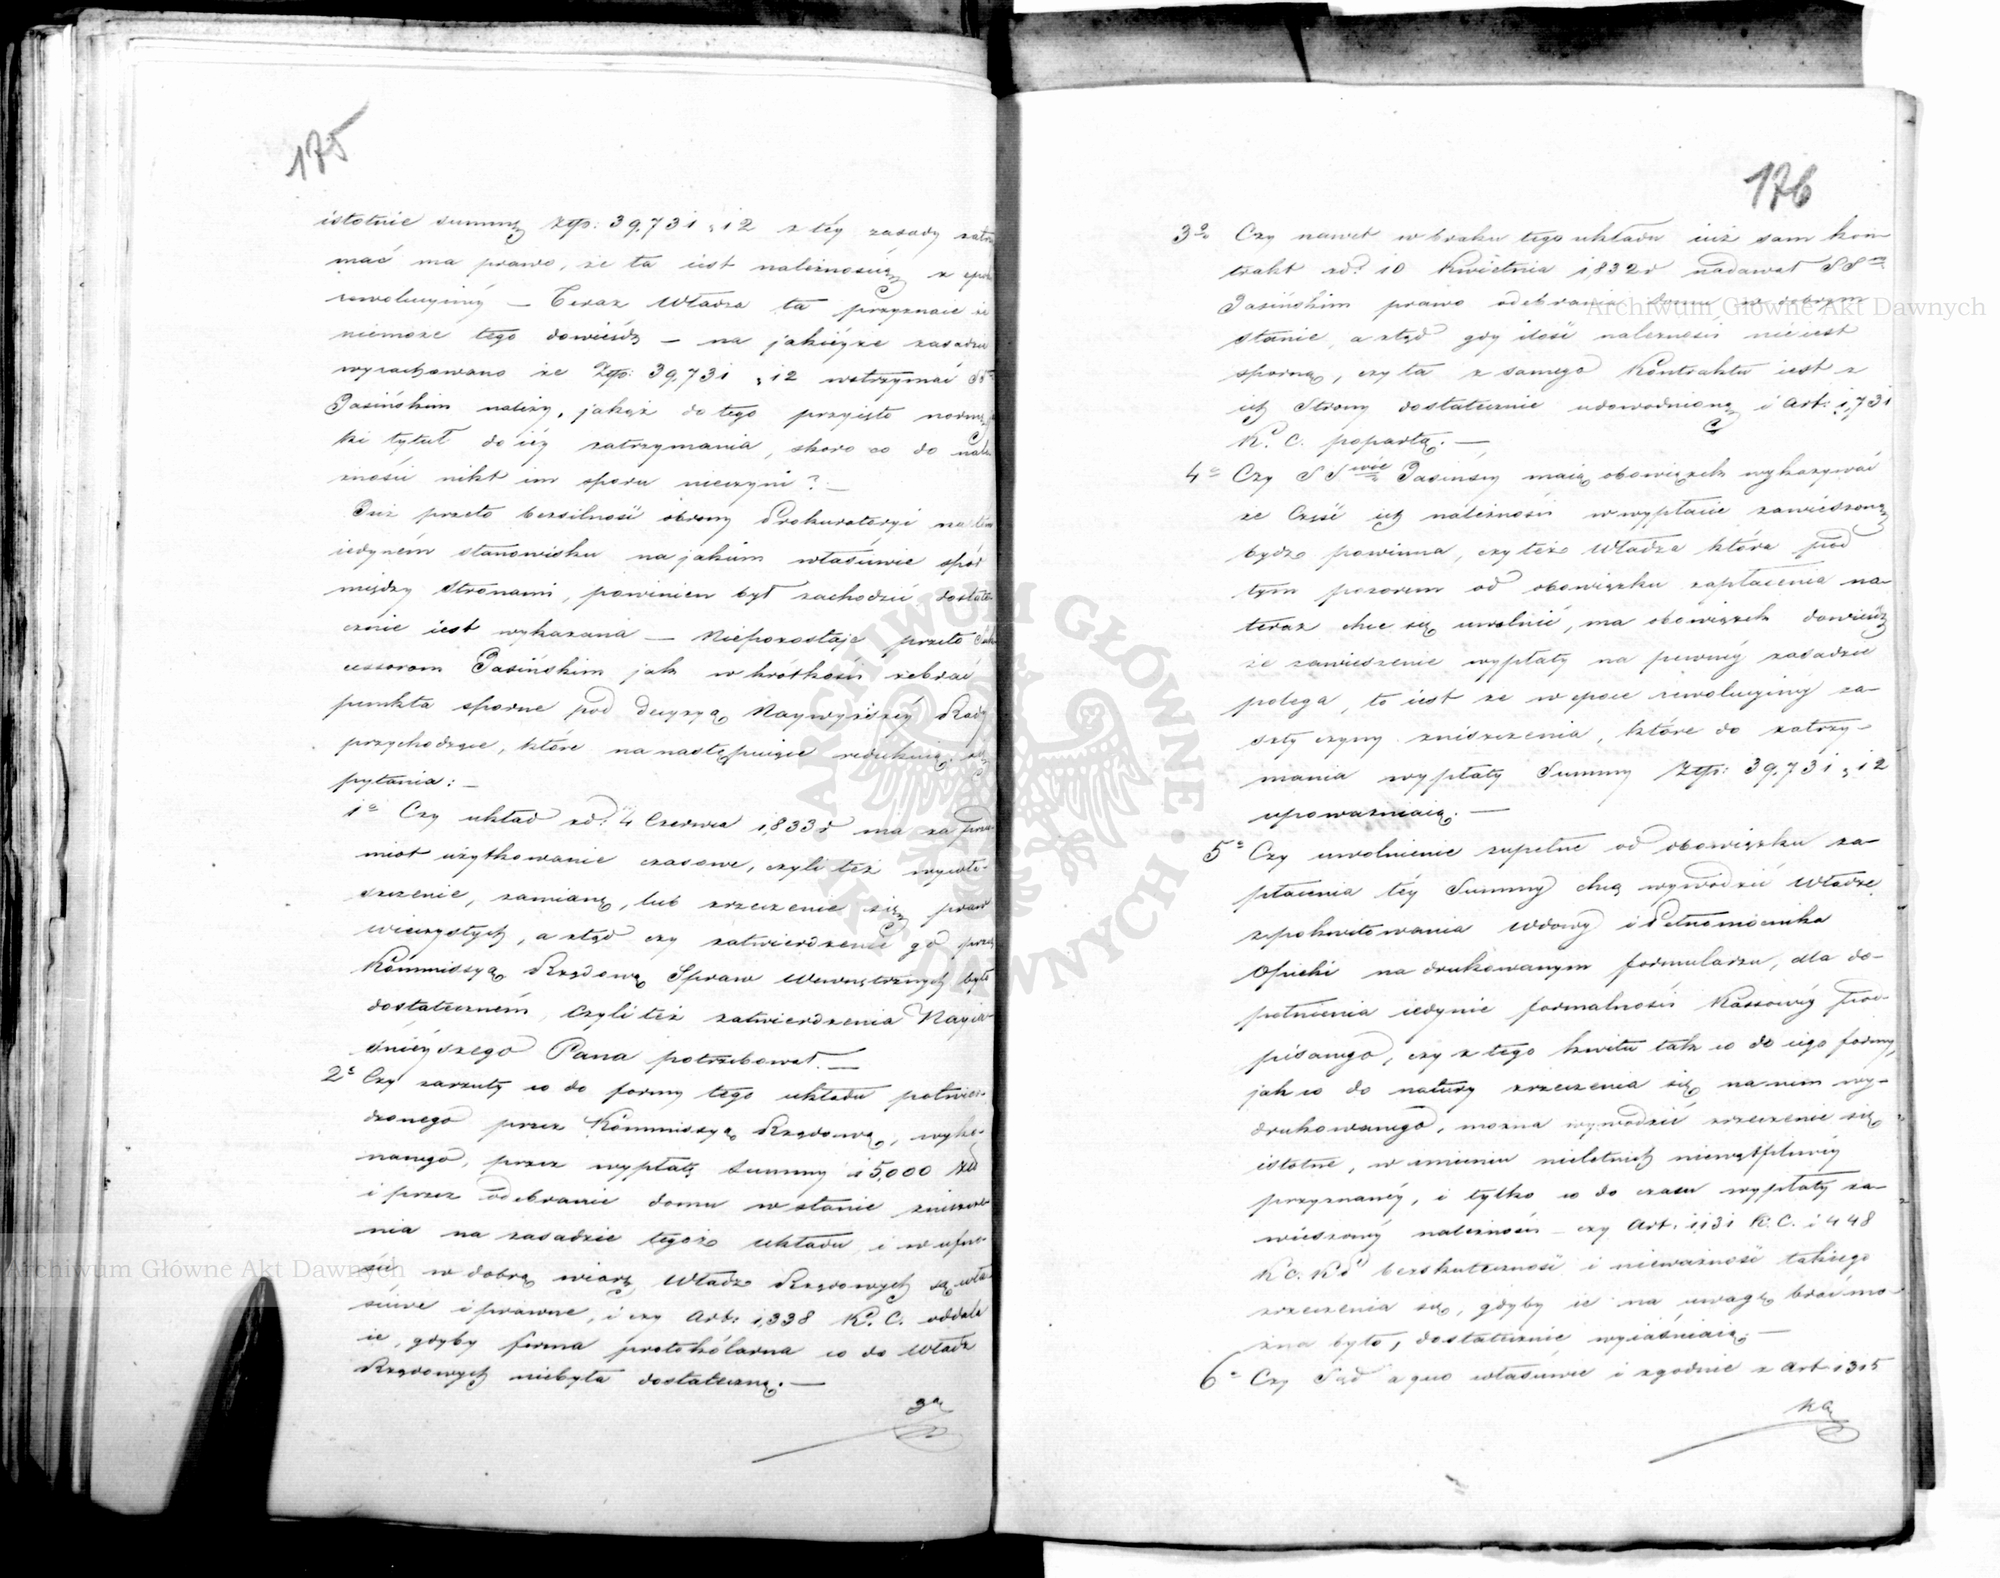 175
istotnie summę Złp: 39,731 ,, 12 z téy zasady zatrzy
mać ma prawo, że ta iest należnością z epoki
rewolucyinéy — Teraz Władza ta przyznaie że
niemoże tego dowieśdź — na jakiéyże zasadzie
wyrachowano że Złp: 39,731 ,, 12 wstrzymać SS
Jasińskim należy, jakąż do tego przyięto normę
ki tytuł do iéy zatrzymania, skoro co do nale
żności nikt im sporu nieczyni? —
Już przeto bezsilność obrony Prokuratoryi na tém
iedyném stanowisku na jakiém właściwie spór
między Stronami, powinien był zachodzić dostate
cznie iest wykazaną — Niepozostaje przeto Suk
cessorom Jasińskim jak w krótkości zebrać
punkta sporne pod decyzyą Naywyższéy Rady
przychodzące, które na następuiące redukuią się
pytania: —
1o Czy układ z d: 4 Czerwca 1833 r ma za przed
miot użytkowanie czasowe, czyli też wywła-
szczenie, zamianę, lub zrzeczenie się praw
wieczystych, a ztąd czy zatwierdzenie go przez
Kommissyą Rządową Spraw Wewnętrznych było
dostateczném, Czyli też zatwierdzenia Nayia-
śnieyszego Pana potrzebował. —
2o Czy zarzuty co do formy tego układu potwier-
dzonego przez Kommissyą Rządową, wyko-
nanego, przez wypłatę Summy 15,000 Złp
i przez odebranie domu w stanie zniszcze-
nia na zasadzie tegoż układu, i w ufno-
ści w dobrą wiarę Władz Rządowych są wła-
ściwe i prawne, i czy Art: 1,338 K. C. oddala
ie, gdyby forma protokólarna co do Władz
Rządowych niebyła dostateczną. —
3o
176
3o Czy nawet w braku tego układu iuż sam kon-
trakt z d: 10 Kwietnia 1832 r nadawał SSom
Jasińskim prawo odebrania domu w dobrym
stanie, a ztąd gdy ilość należności nie iest
sporną, czy ta z samego Kontraktu iest z
ich Strony dostatecznie udowodnioną i Art: 1,731
K. C. popartą. —
4o Czy SSwie Jasińscy maią obowiązek wykazywać
że Część ich należności w wypłacie zawieszoną
bydź powinna, czy też Władza która pod
tym pozorem od obowiązku zapłacenia na-
teraz chce się uwolnić, ma obowiązek dowieśdź
że zawieszenie wypłaty na pewnéy zasadzie
polega, to iest że w epoce rewolucyinéy za-
szły czyny zniszczenia, które do zatrzy-
mania wypłaty Summy Złp: 39,731 ,, 12
upoważniaią. —
5o Czy uwolnienie zupełne od obowiązku za-
płacenia téy Summy chcą wywodzić Władze
z pokwitowania Wdowy i Pełnomocnika
Opieki na drukowanym formularzu, dla do-
pełnienia iedynie formalności Kassowéy pod-
pisanego, czy z tego kwitu tak co do iego formy,
jak co do natury zrzeczenia się na nim wy-
drukowanego, można wywodzić zrzeczenie się
istotne, w imieniu nieletnich niewątpliwéy
przyznanéy, i tylko co do czasu wypłaty za-
wieszonéy należności — czy Art: 1131 K. C. i 448
K C. K P bezskuteczność i nieważność takiego
zrzeczenia się, gdyby ie na uwagę brać mo-
żna było, dostatecznie wyiaśniaią. —
6o Czy Sąd a quo właściwie i zgodnie z Art 1315
KC